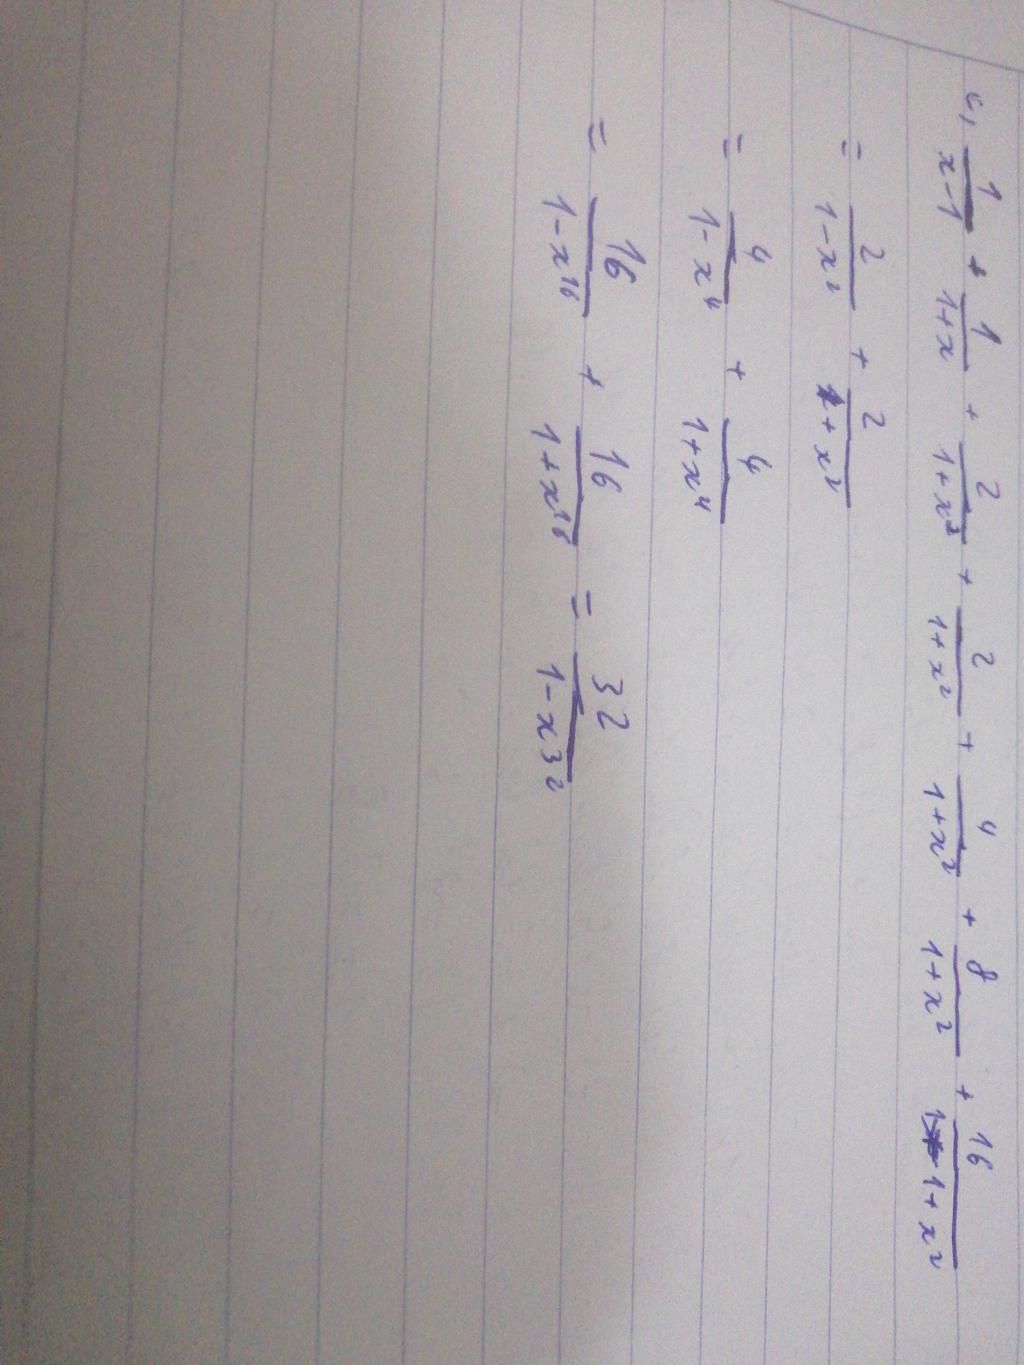 c, 1/(x-1) + 1/(1+x) + 2/(1+x²) + 2/(1+x²) + 4/(1+x²) + 8/(1+x²) + 16/(1+x²)
= 2/(1-x²) + 2/(1+x²)
= 4/(1-x⁴) + 4/(1+x⁴)
= 16/(1-x¹⁶) + 16/(1+x¹⁶) = 32/(1-x³²)